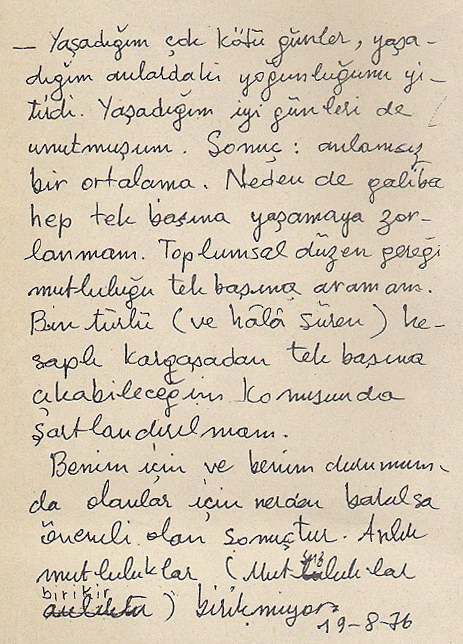 — Yaşadığım çok kötü günler, yaşa-
dığım anlardaki yoğunluğunu yi-
tirdi. Yaşadığım iyi günleri de
unutmuşum. Sonuç: anlamsız
bir ortalama. Neden de galiba
hep tek başına yaşamaya zor-
lanmam. Toplumsal düzen gereği
mutluluğu tek başına aramam.
Bin türlü (ve hâlâ süren) he-
saplı kargaşadan tek başına
çıkabileceğim konusunda
şartlandırılmam.
Benim için ve benim durumum-
da olanlar için nerden bakılsa
önemli olan sonuçtur. Anlık
mutluluklar (Mutsuzluklar
birikir) birikmiyor.
19-8-76